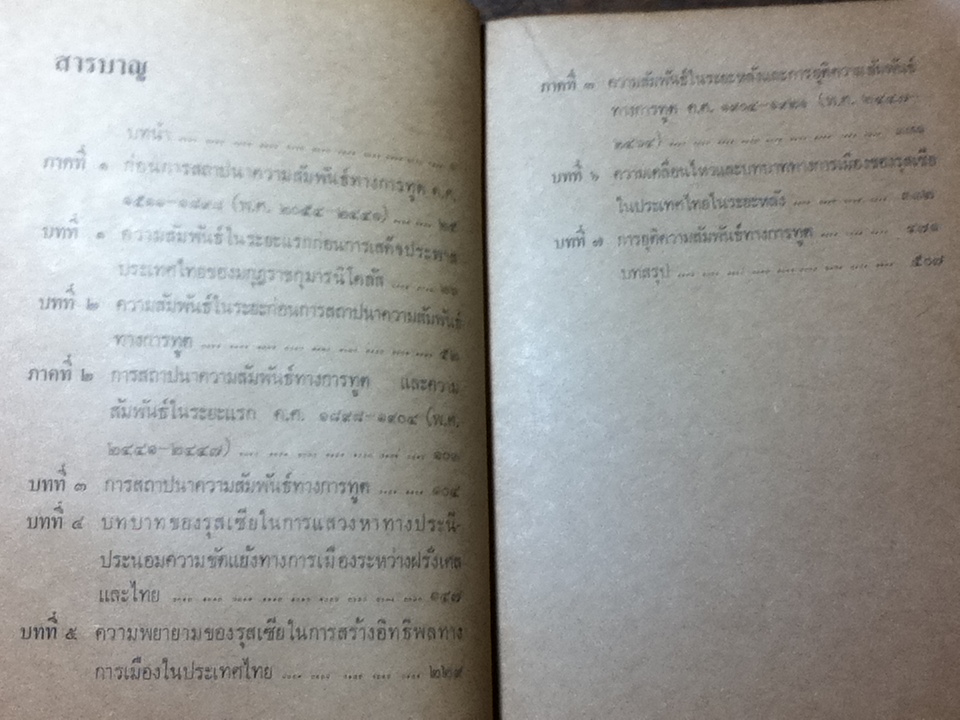 สารบาญ
บทนำ .... .... .... .... .... .... .... .... .... .... ๑
ภาคที่ ๑ ก่อนการสถาปนาความสัมพันธ์ทางการทูต ค.ศ.
๑๕๑๑-๑๘๙๘ (พ.ศ. ๒๐๕๔-๒๔๔๑) .... .... ๒๕
บทที่ ๑ ความสัมพันธ์ในระยะแรกก่อนการเสด็จประพาส
ประเทศไทยของมกุฎราชกุมารนิโคลัส .... .... ๒๖
บทที่ ๒ ความสัมพันธ์ในระยะก่อนการสถาปนาความสัมพันธ์
ทางการทูต .... .... .... .... .... .... .... .... .... ๕๒
ภาคที่ ๒ การสถาปนาความสัมพันธ์ทางการทูต และความ
สัมพันธ์ในระยะแรก ค.ศ. ๑๘๙๘-๑๙๐๔ (พ.ศ.
๒๔๔๑-๒๔๔๗) .... .... .... .... .... .... ....
บทที่ ๓ การสถาปนาความสัมพันธ์ทางการทูต .... .... ๑๐๔
บทที่ ๔ บทบาทของรุสเซียในการแสวงหาทางประนี-
ประนอมความขัดแย้งทางการเมืองระหว่างฝรั่งเศส
และไทย .... .... .... .... .... .... .... .... .... ๑๔๗
บทที่ ๕ ความพยายามของรุสเซียในการสร้างอิทธิพลทาง
การเมืองในประเทศไทย .... .... .... .... .... ๒๒๙
ภาคที่ ๓ ความสัมพันธ์ในระยะหลังและการยุติความสัมพันธ์
ทางการทูต ค.ศ. ๑๙๐๔-๑๙๒๑ (พ.ศ. ๒๔๔๗-
๒๔๖๔) .... .... .... .... .... .... .... ....
บทที่ ๖ ความเคลื่อนไหวและบทบาททางการเมืองของรุสเซีย
ในประเทศไทยในระยะหลัง .... .... .... .... ๓๓๒
บทที่ ๗ การยุติความสัมพันธ์ทางการทูต .... .... .... ๔๗๑
บทสรุป .... .... .... .... .... .... .... .... .... ๕๐๗